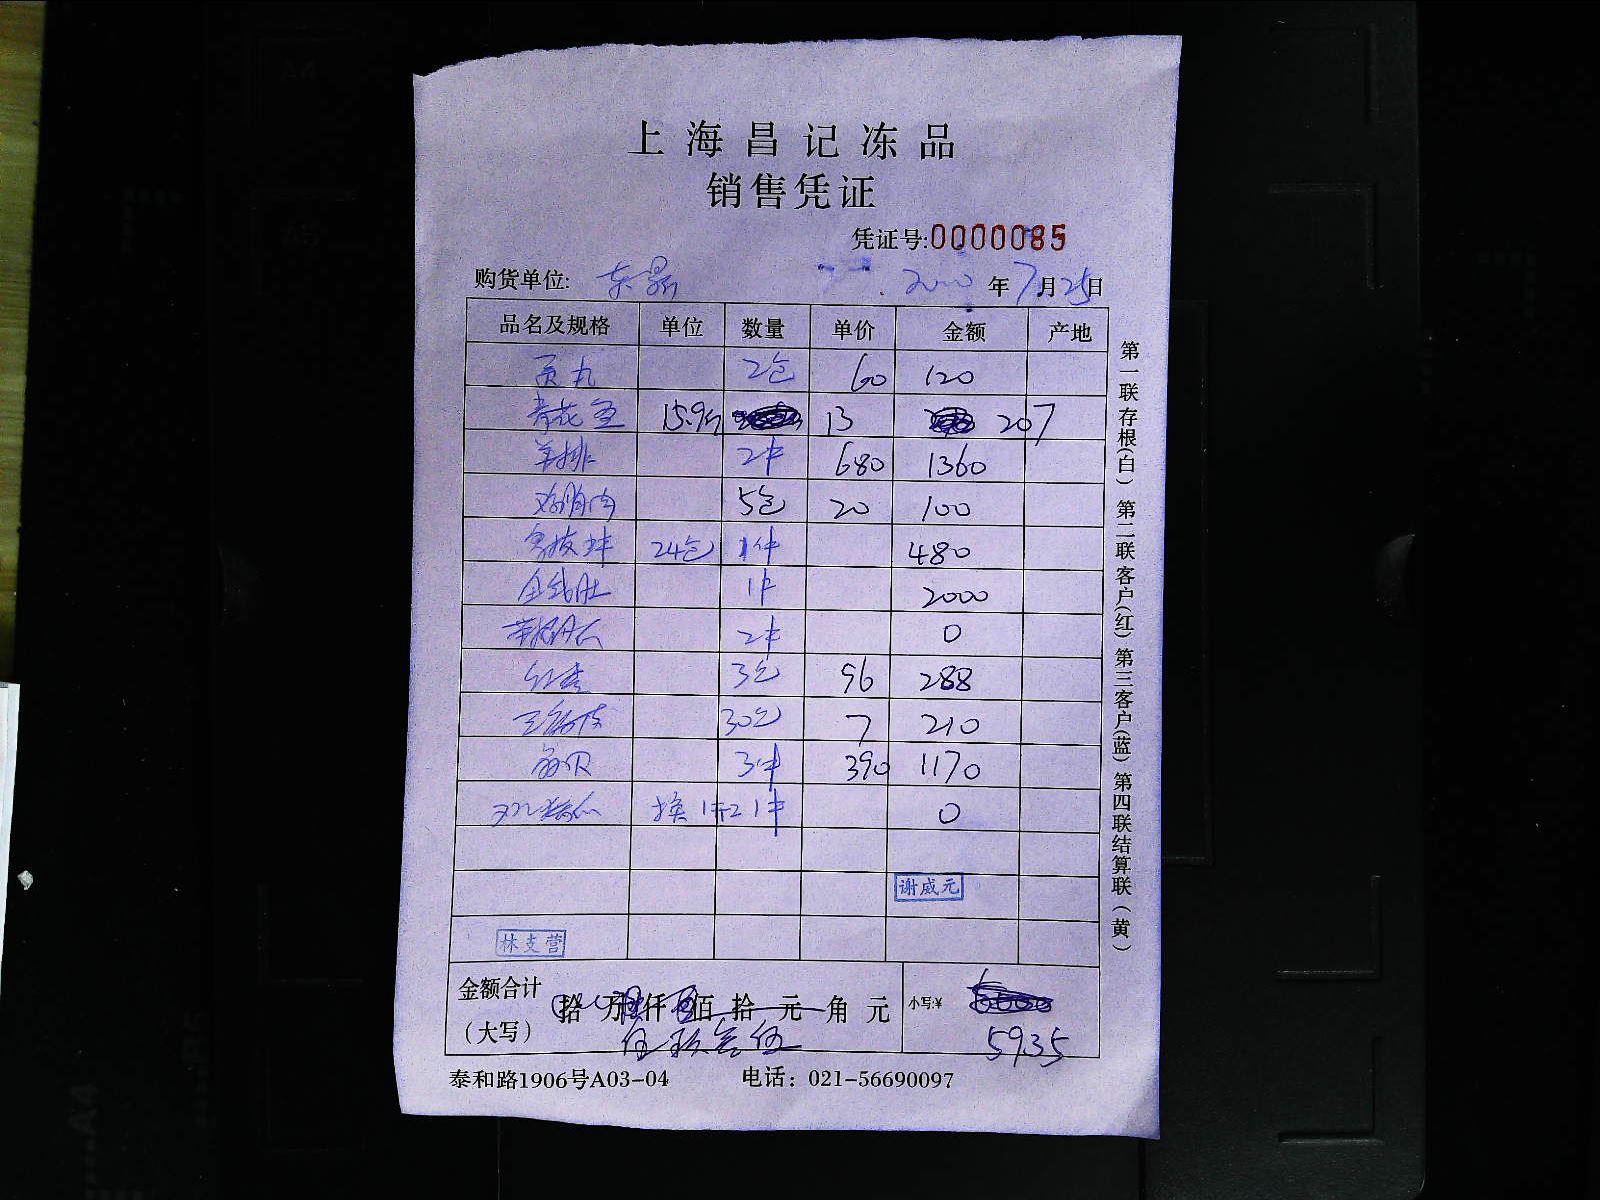 上海昌记冻品
销售凭证
凭证号:0000085
购货单位: 年7月25日
品名及规格 单位 数量 单价 金额 产地
贡丸 2包 60 120
青花鱼 15.9斤 13 207
羊排 2件 680 1360
5包 20 100
24包 1件 480
金钱肚 1件 2000
2件 0
3包 96 288
30包 7 210
3件 390 1170
换 1件 0
谢威元
林支营
金额合计(大写) 拾 万 仟 佰 拾 元 角 元 小写:¥
伍玖叁伍 5935
泰和路1906号A03-04 电话：021-56690097
第一联存根(白) 第二联客户(红) 第三客户(蓝) 第四联结算联(黄)